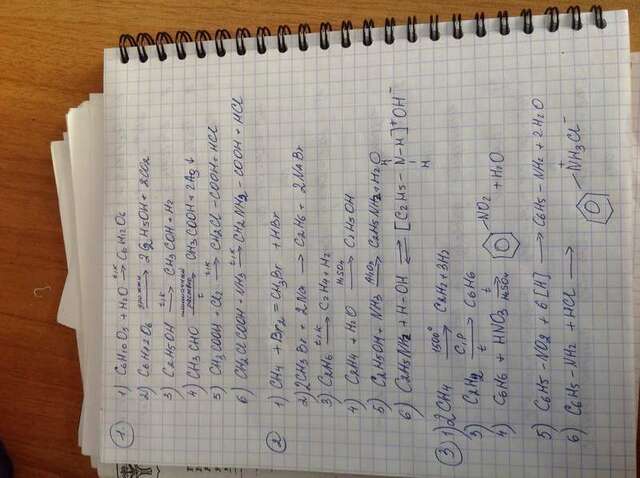 1
1) C6H10O5 + H2O t.к → C6H12O6
2) C6H12O6 дрожжи → 2C2H5OH + 2CO2
3) C2H5OH t.к → CH3COH + H2
4) CH3CHO аммиачный раствор t → CH3COOH + 2Ag↓
5) CH3COOH + Cl2 t.к → CH2Cl-COOH + HCl
6) CH2ClCOOH + NH3 t.к → CH2NH2-COOH + HCl
2
1) CH4 + Br2 = CH3Br + HBr
2) 2CH3Br + 2Na → C2H6 + 2NaBr
3) C2H6 t.к → C2H4 + H2
4) C2H4 + H2O H2SO4 → C2H5OH
5) C2H5OH + NH3 Al2O3 → C2H5NH2 + H2O
6) C2H5NH2 + H-OH ⇌ [C2H5-N-H]⁺OH⁻
H
H
3
1) 2CH4 1500° → C2H2 + 3H2
3) C2H2 C,P t → C6H6
4) C6H6 + HNO3 t H2SO4 → NO2 + H2O
5) C6H5-NO2 + 6[H] → C6H5-NH2 + 2H2O
6) C6H5-NH2 + HCl → NH3Cl⁻